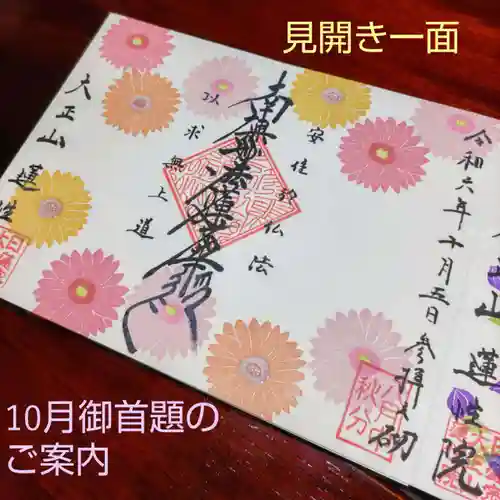 見開き一面
令和六年十月五日参拝之砌
安住於仏法
南無妙法蓮華経
以求無上道
大正山 蓮
山 蓮
院
八月中
秋分
10月御首題の
ご案内